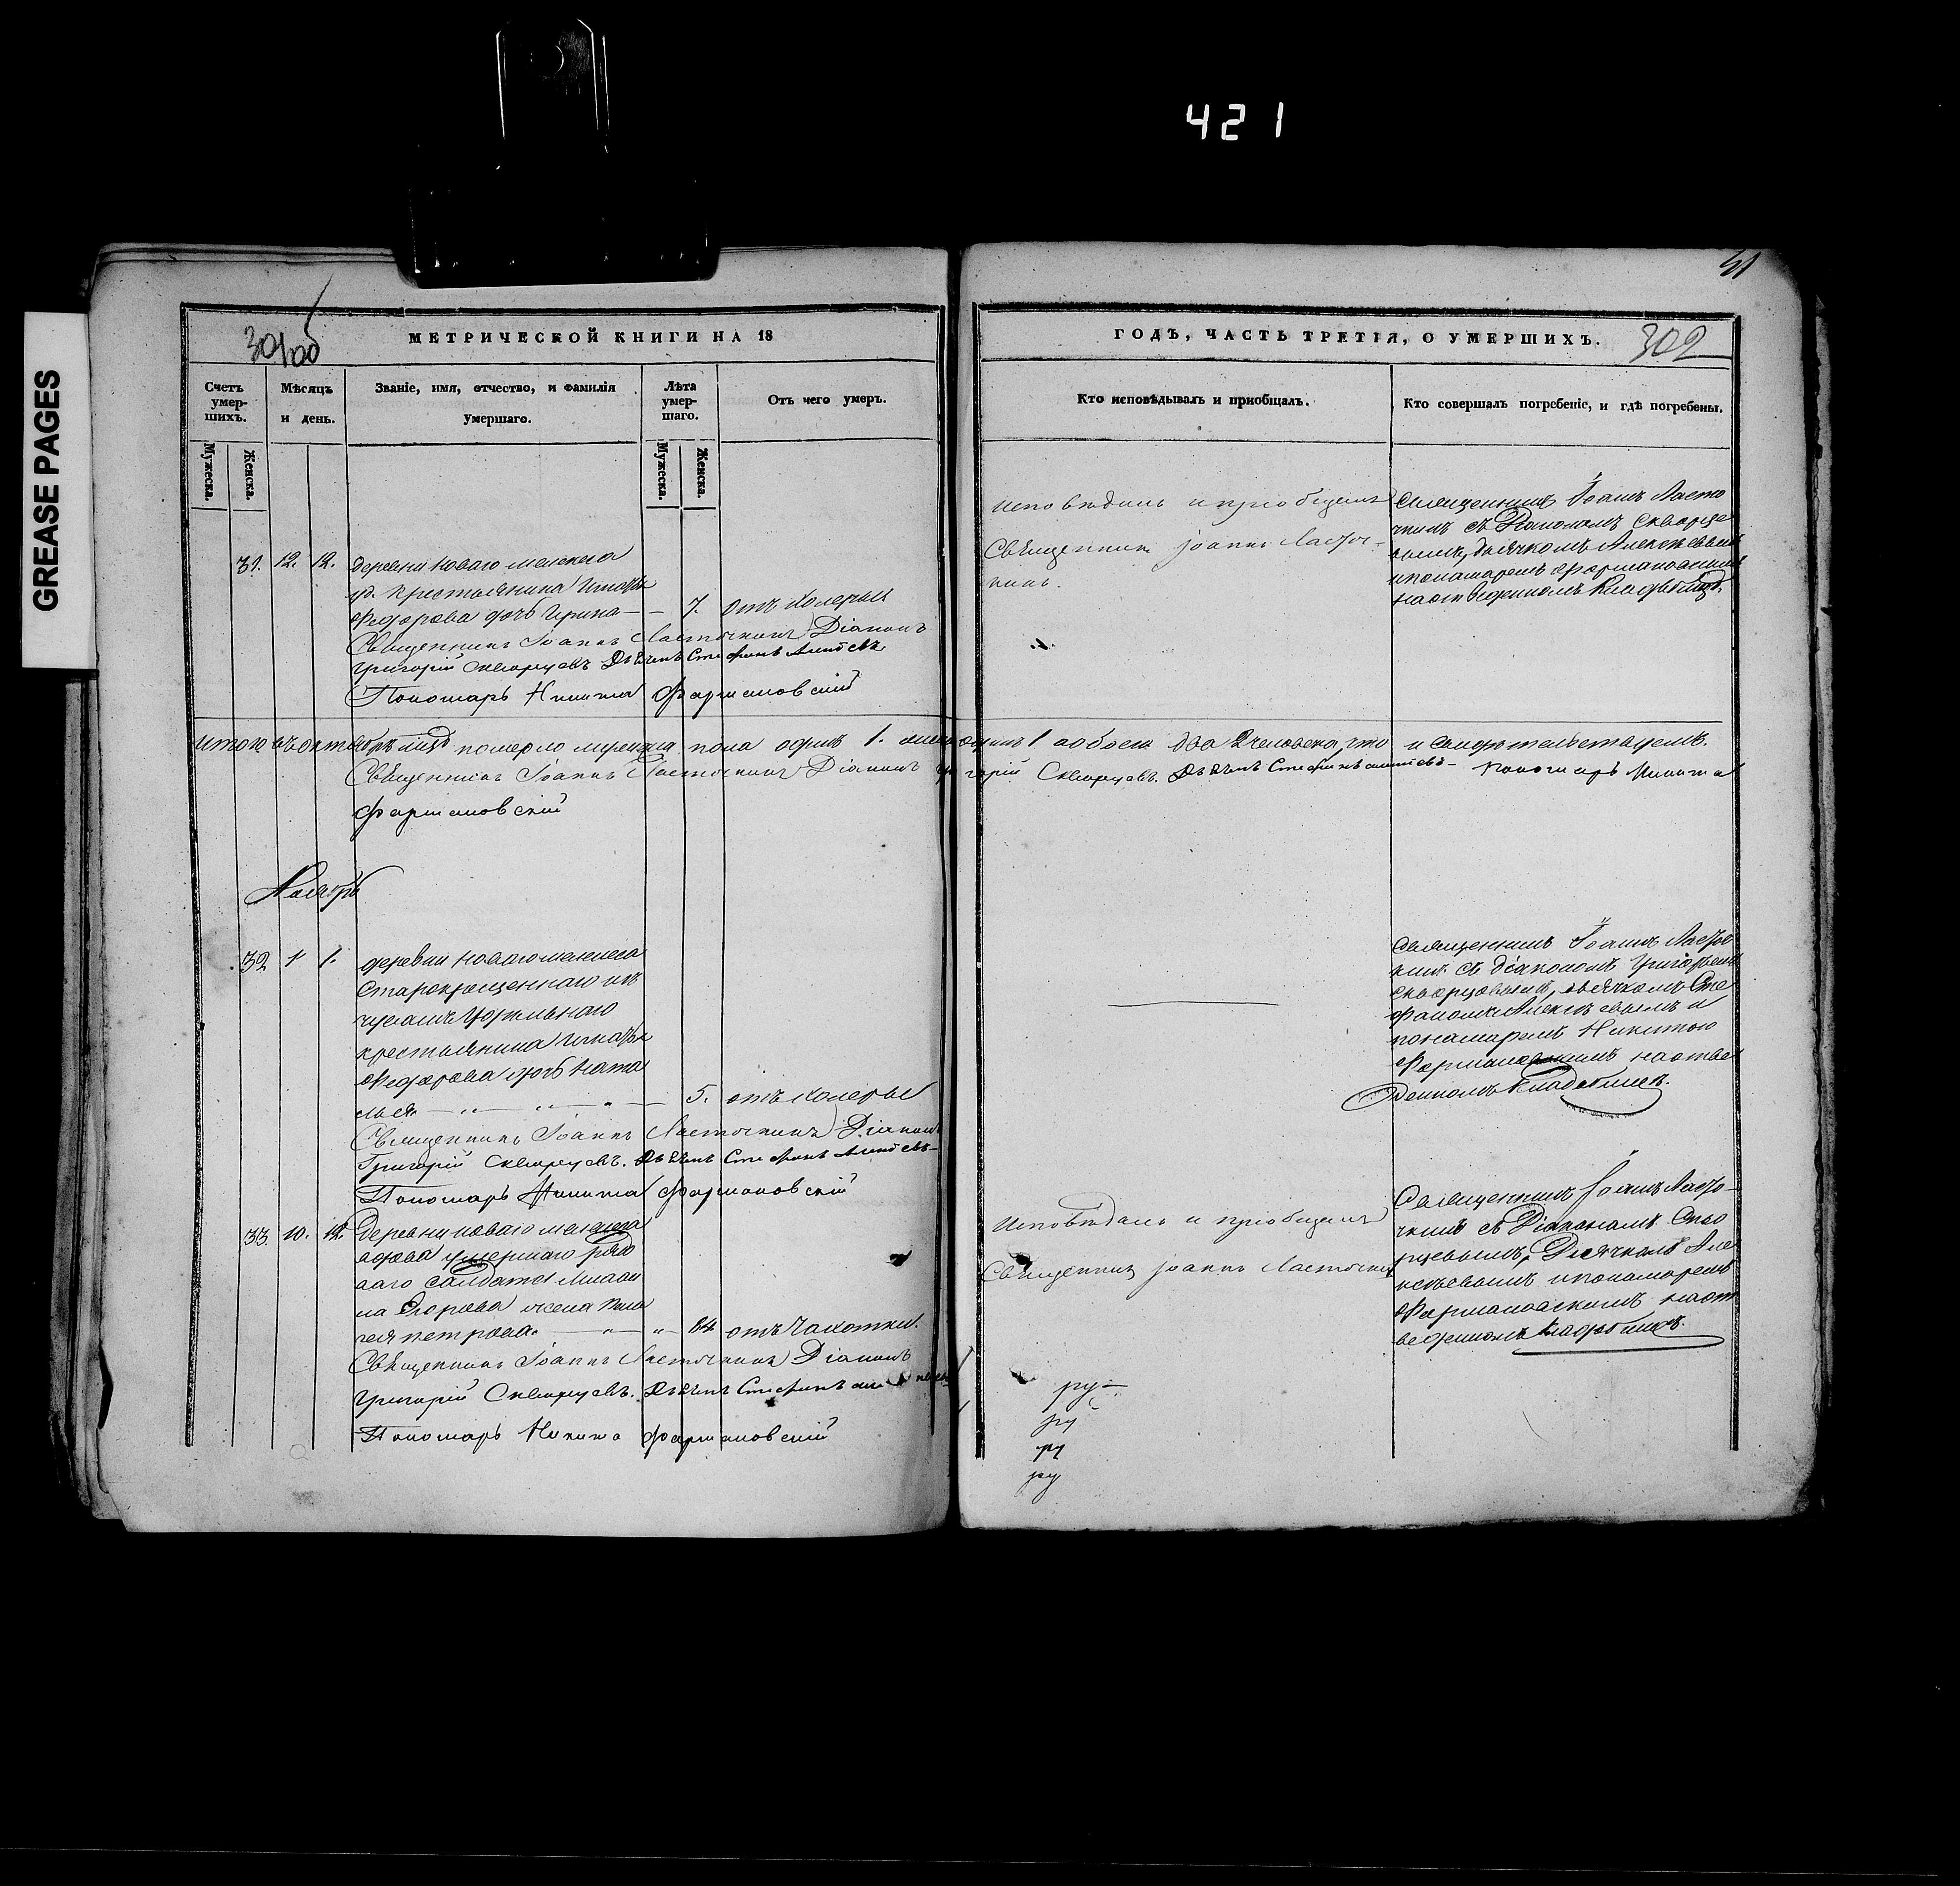 421
GREASE PAGES
51
МЕТРИЧЕСКОЙ КНИГИ НА 18
Счетъ умер- шихъ.
Мѣсяцъ и день.
Званіе, имя, отчество, и фамилія умершаго.
Лѣта умер- шаго.
Отъ чего умеръ.
Мужеска.
Женска.
Мужеска.
Женска.
31. 12. 12. деревни Новаго
крестьянина
Федорова дочь Ирина — — 7. отъ холеры
Священникъ Іоаннъ Ласточкинъ Діаконъ
Григорій Скворцовъ Дьячекъ Стефанъ
Пономарь Никита Фармаковскій
Итого въ октябрѣ померло пола одинъ 1.
Священникъ Іоаннъ Ласточкинъ Діаконъ
Фармаковскій
Ноябрь
32 1 1. деревни Новаго
Старокрещеннаго изъ
чувашъ удѣльнаго
крестьянина
Федорова дочь Ната
лья — „ — „ — „ — 5. отъ холеры
Священникъ Іоаннъ Ласточкинъ Діаконъ
Григорій Скворцовъ. Дьячекъ Стефанъ
Пономарь Никита Фармаковскій
33. 10. 12. Деревни новаго
вдова умершаго рядо
ваго салдата
на жена
гея петрова. — „ — „ — 64 отъ чахотки.
Священникъ Іоаннъ Ласточкинъ Діаконъ
Григорій Скворцовъ. Дьячекъ Стефанъ
Пономарь Никита Фармаковскій
ГОДЪ, ЧАСТЬ ТРЕТІЯ, О УМЕРШИХЪ. 302
Кто исповѣдывалъ и приобщалъ.
Кто совершалъ погребеніе, и гдѣ погребены.
Исповѣдалъ и приобщалъ
Священникъ Іоаннъ Ласточ-
кинъ.
Священникъ Іоаннъ Ласто
чкинъ съ Діакономъ Скворцо
вымъ, дьячкомъ Алексѣевымъ
и пономаремъ Фармаковскимъ
на отведенномъ кладбищѣ.
1 а обоего два 2 человека, что и свидѣтельствуемъ.
Скворцовъ. Дьячекъ Стефанъ — Пономарь Никита
Священникъ Іоаннъ Ласточ
кинъ съ діакономъ Григорьемъ
Скворцовымъ, дьячкомъ Сте
фаномъ Алексѣевымъ и
понамаремъ Никитою
Фармаковскимъ на отве
денномъ кладбищѣ.
Исповѣдалъ и приобщалъ
Священникъ Іоаннъ Ласточкинъ
Священникъ Іоаннъ Ласто-
чкинъ съ Діакономъ Скво
рцевымъ, Дьячкомъ Але
ксѣевымъ и пономаремъ
Фармаковскимъ на от
веденномъ кладбищѣ.
ру-
ру
ру
ру